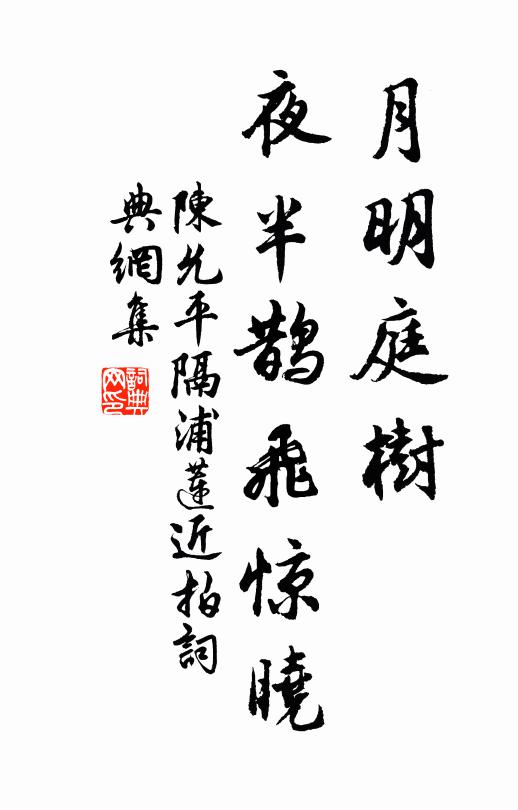 月明庭樹
夜半鹊飛惊曉
陳允平隔浦蓮近拍詞
典網集
詞典網印